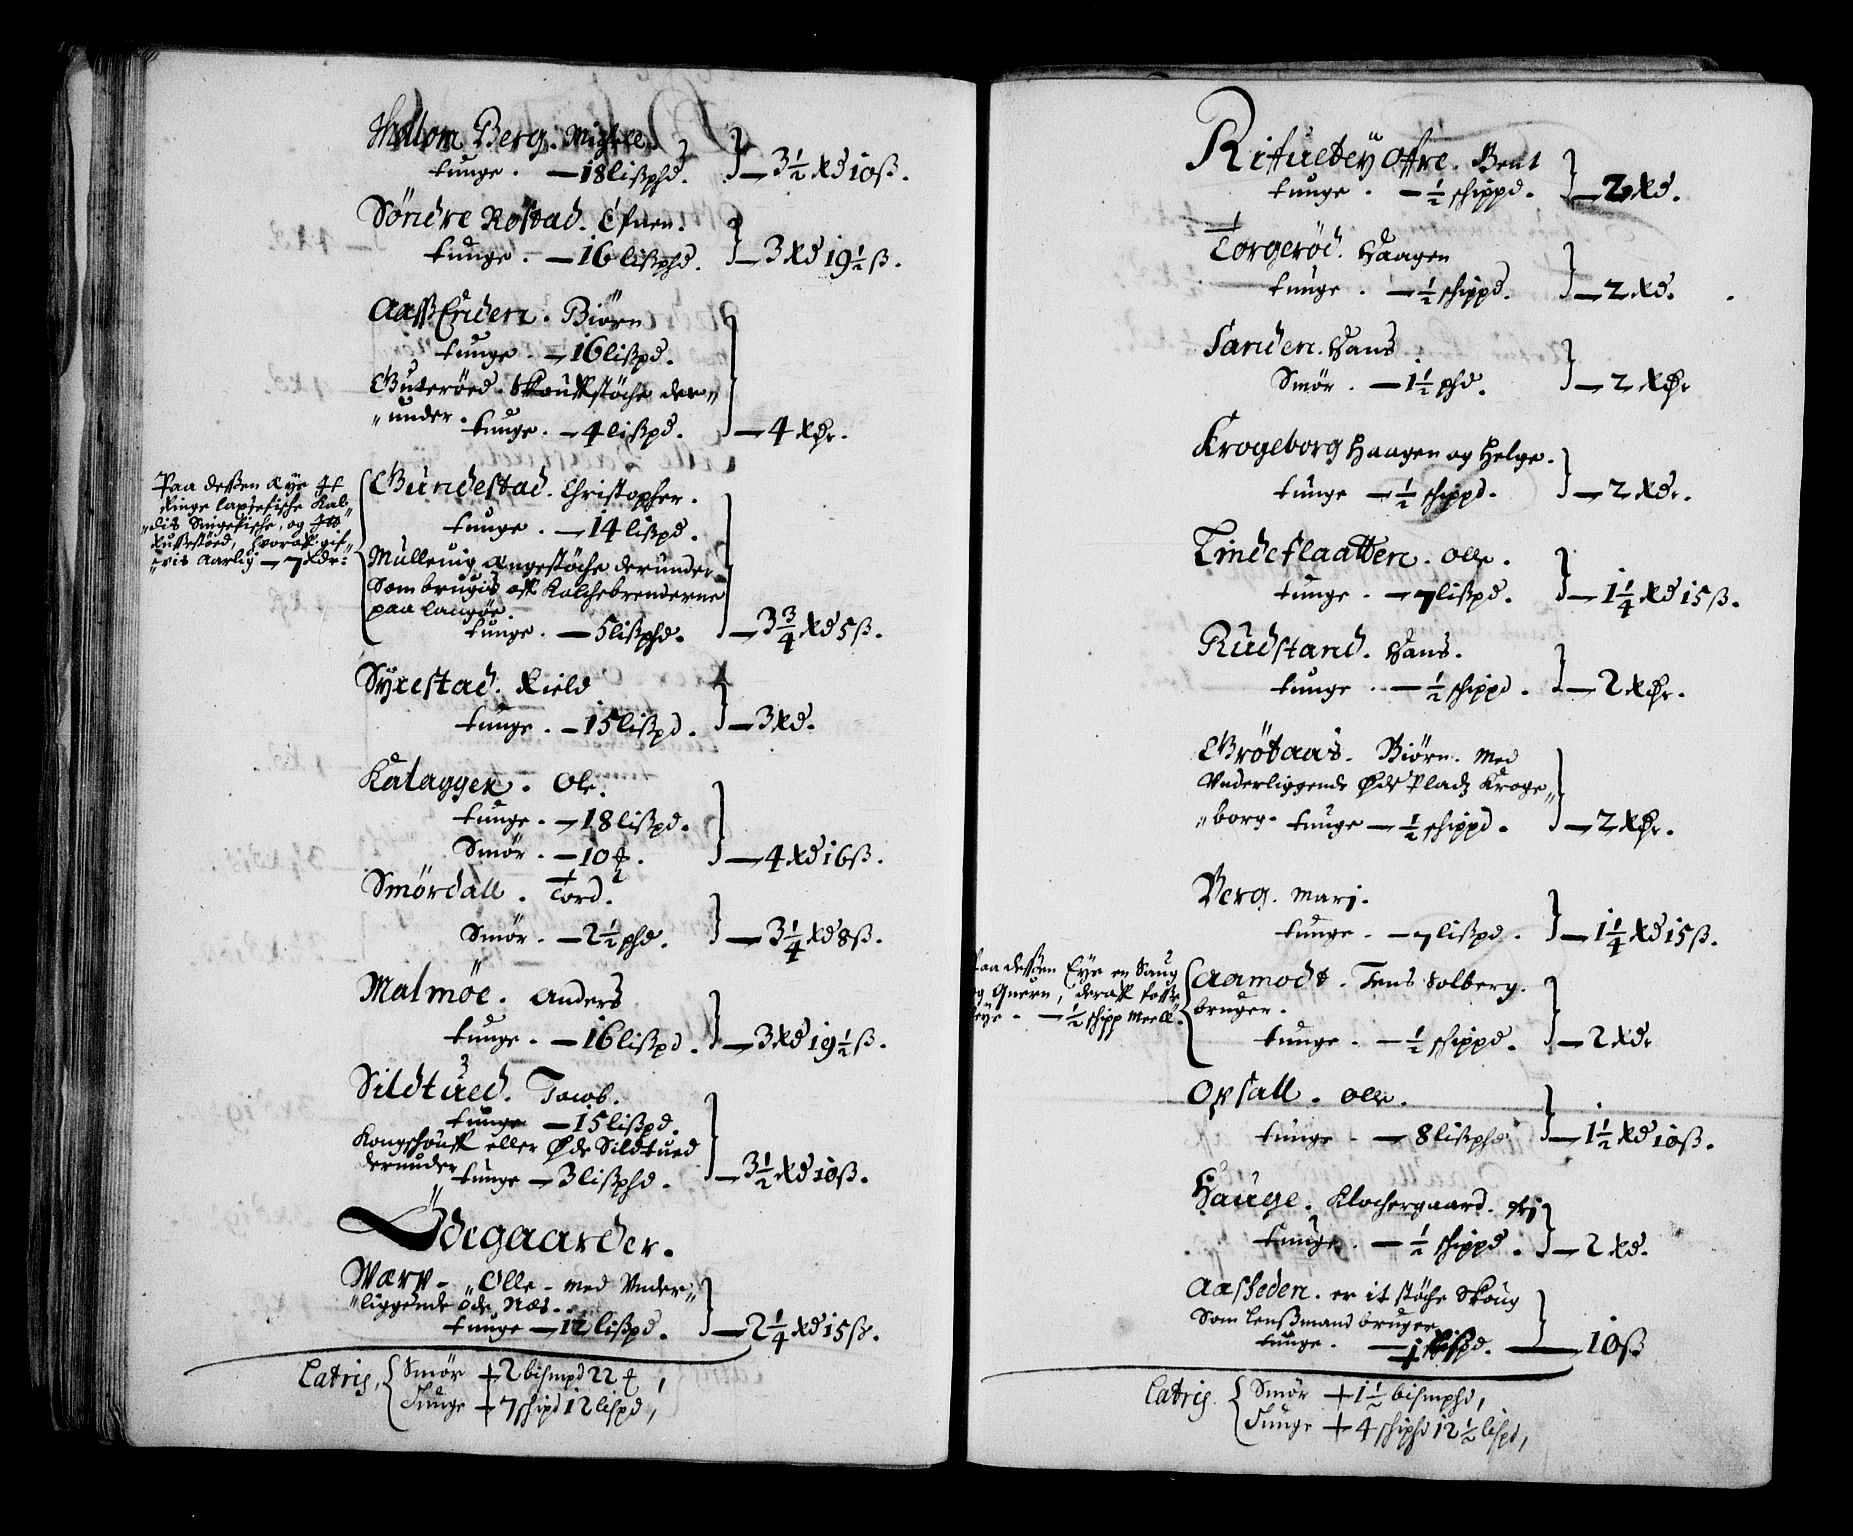 Hollom Berg. Michell.
tunge. — 18 lißphd. — 3½ Rd 10 ß.
Söndre Rostad. Efuen.
tunge. — 16 lißphd. — 3 Rd 19½ ß.
Aaßenden. Biörn
tunge. — 16 lißpd.
Guteröed. Skouffstöche der„
„under. tunge. — 4 lißpd. — 4 Rdr.
Paa deßen Eye
Ringe laxefische
„dis Smgefische, og
Rußestöed, hvoraff gif„
„vis Aarlig — 7 Rdr:
Gundestad. Christopher.
tunge. — 14 lißpd.
Mulleuig Engestöche derunder
Som brugis aff Kalchebrenderne
paa langöe.
tunge. — 5 lißphd. — 3¾ Rd 5 ß.
Syrestad. Kield
tunge. — 15 lißpd. — 3 Rd.
Katagger. Ole.
tunge. — 18 lißpd.
Smör. — 10 ℔. — 4 Rd 16 ß.
Smördall. Tord.
Smör. — 2½ phd. — 3¼ Rd 8 ß.
Malmöe. Anders
tunge. — 16 lißpd. — 3 Rd 19½ ß.
Sildtued. Jacob.
tunge — 15 lißpd.
Kongshouff eller Øde Sildtued
derunder tunge — 3 lißphd. — 3½ Rd 10 ß.
Ödegaarder.
Wærv — Olle — med Vnder„
„liggende öde Næs.
tunge — 12 lißpd. — 2¼ Rd 15 ß.
Latris. Smör + 2 bismpd 22 ℔,
Tunge + 7 schipd 12 lispd,
Rifueböy Offre. Bent
tunge. — ½ schippd. — 2 Rd.
Torgeröd. Haagen
tunge. — ½ schippd. — 2 Rd.
Sanden. Hans.
Smör. — 1½ phd. — 2 Rdr
Krogeborg Haagen og Helge.
tunge — ½ schippd. — 2 Rdr.
Lindeflaatten. Olle.
tunge. — 7 lißpd. — 1¼ Rd 15 ß.
Rudstand. Hans.
tunge. — ½ schippd. — 2 Rdr.
Grötaas. Biörn. med
Vnderliggende Øde Pladz Kroge„
„borg. tunge — ½ schippd. — 2 Rdr.
Berg. Mari.
tunge. — 7 lißpd. — 1¼ Rd 15 ß.
Paa deßen Eye en Saug
og Quern, deraff foße
leye. — ½ schipp Meell.
Aamodt. Jens Solberg.
bruger.
tunge. — ½ schippd. — 2 Rdr
Opsall. Olle.
tunge. — 8 lißphd — 1½ Rd 10 ß.
Hauge. Klochergaard. fri
tunge. — ½ schippd. — 2 Rd.
Aasheden. er it stöche Skoug
Som Lenßmand bruger
tunge. — 1 lißpd. — 10 ß
Latris. Smör + 1½ bismphd,
Tunge + 4 schiphd 12½ lispd,